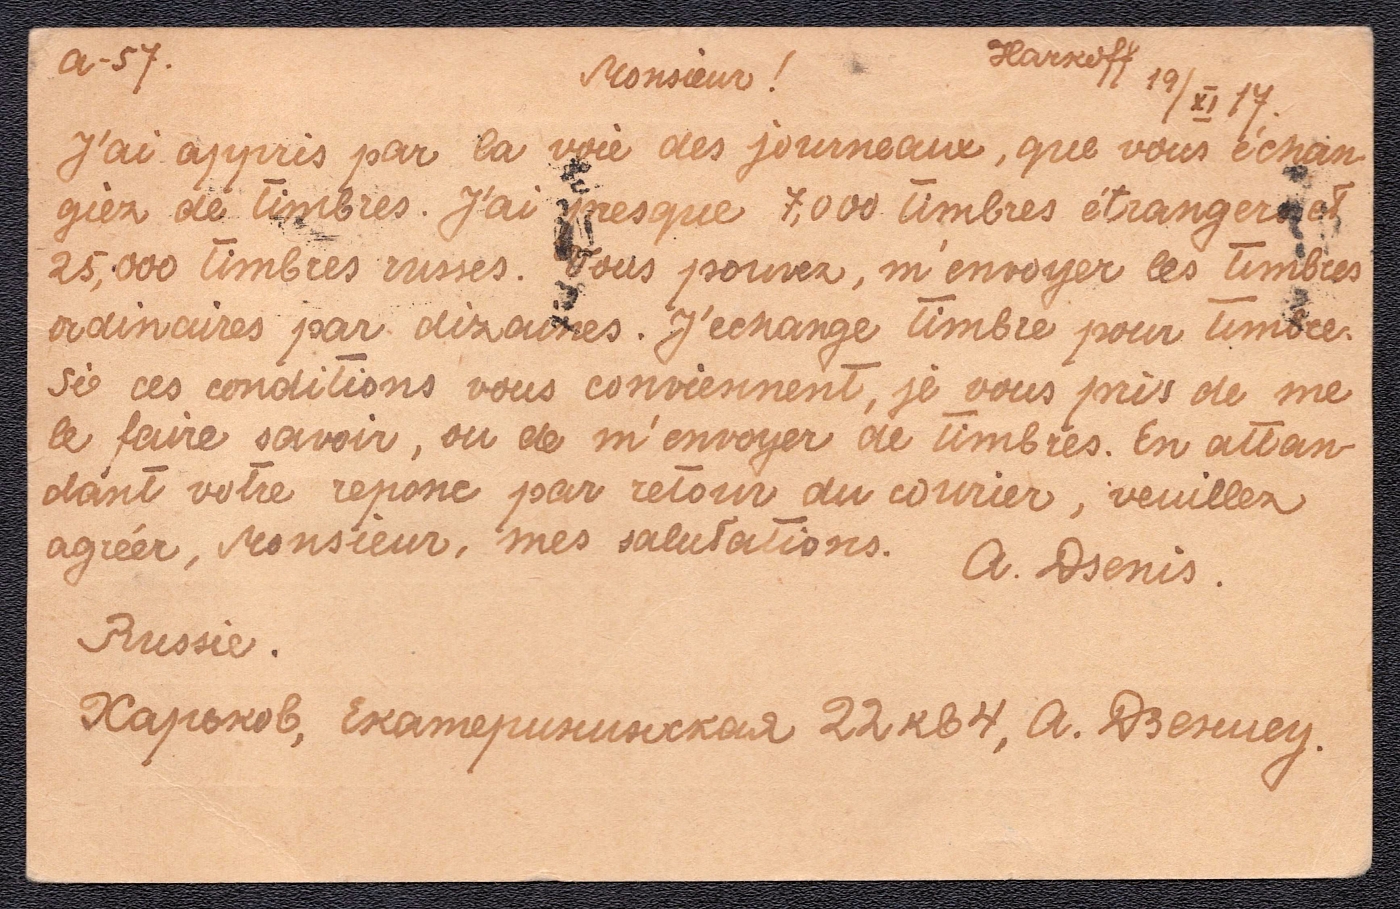 a-57.
Monsieur! Harkoff 19/XI 17.
J'ai appris par la voie des journeaux, que vous échan-
giez de timbres. J'ai presque 7,000 timbres étrangers et
25,000 timbres russes. Vous pouvez, m'envoyer les timbres
ordinaires par dizaines. J'echange timbre pour timbre.
Si ces conditions vous conviennent, je vous pris de me
le faire savoir, ou de m'envoyer de timbres. En attan-
dant votre reponc par retour du courier, veuillez
agréer, Monsieur, mes salutations.
A. Dsenis.
Russie.
Харьков, Екатерининская 22 кв 4, А. Дзенису.